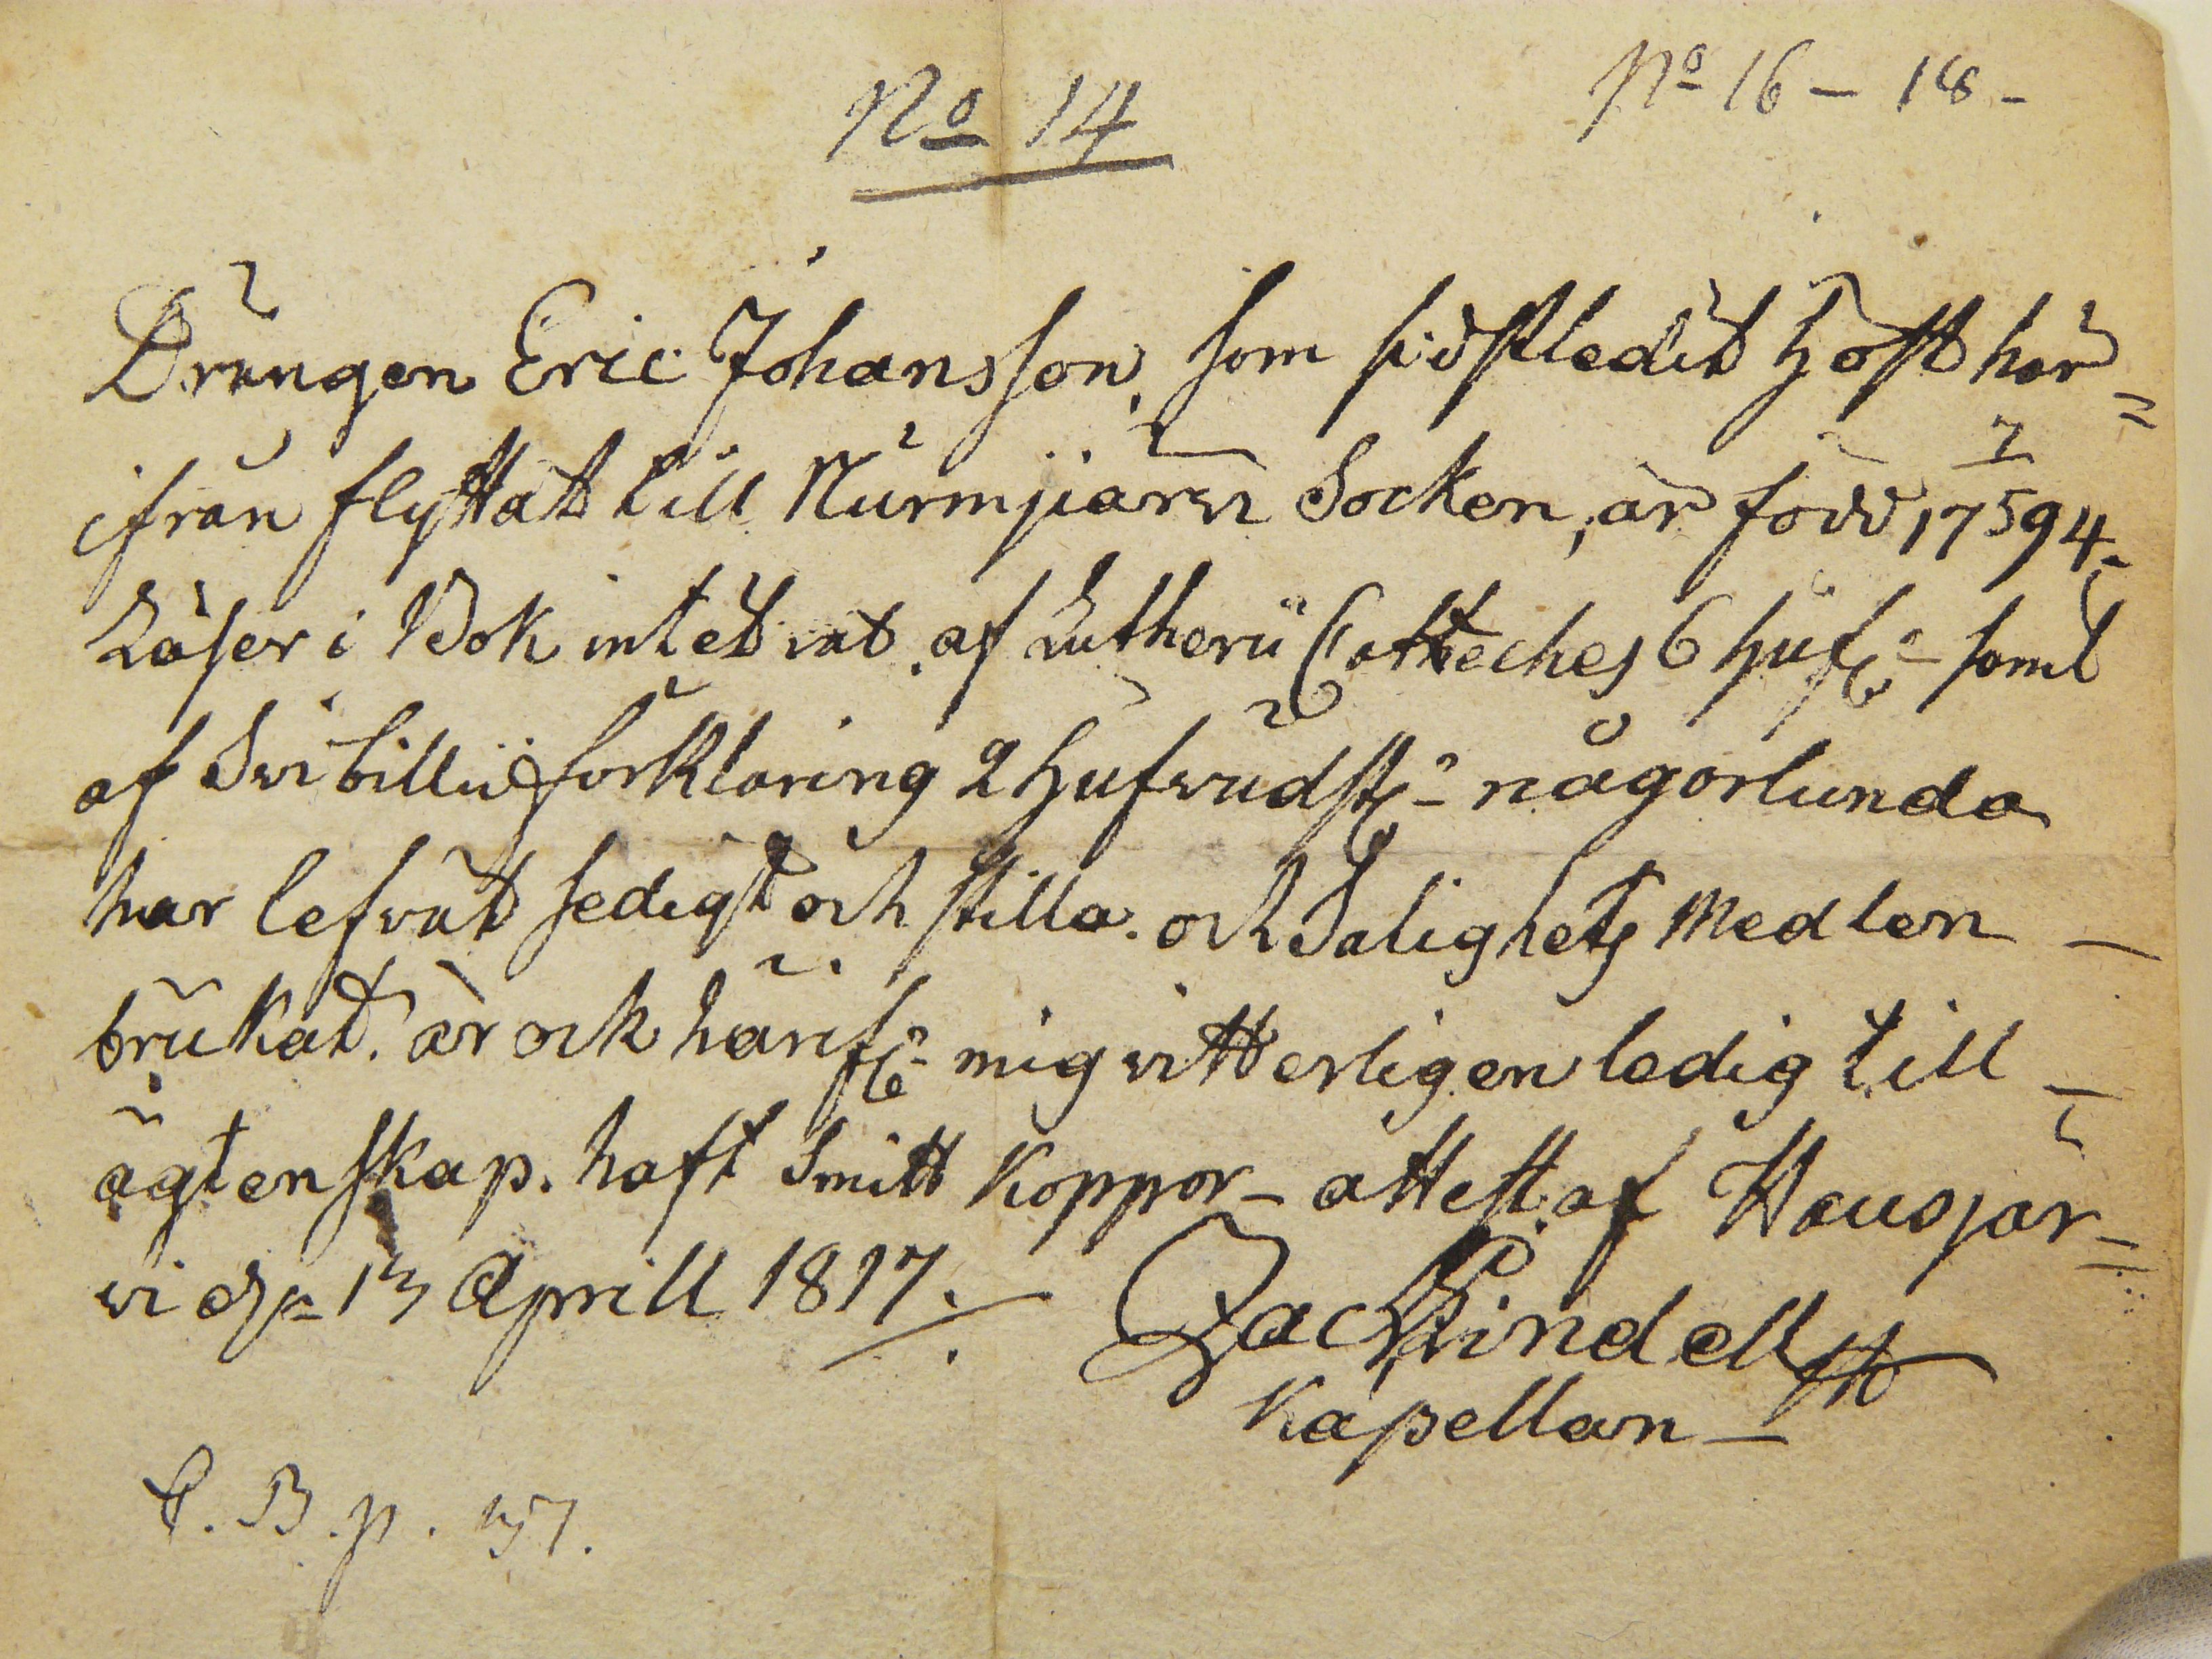 No 14
No 16 – 18 –
Drängen Eric Johansson, som sidstledit höst här=
ifrån flyttat till Nurmjiärvi Socken, är född 17 7/5 94.
Läser i Bok intet rät. af Lutheri Catteches 6 hufst: samt
af Svibillii förklaring 2 hufvudst: någorlunda
har lefvat sedigt och stilla. och Salighets Medlen –
brukat. är ock härifr: mig vitterligen ledig till –
ägtenskap. haft Smitt Koppor – attest. af Hausjär=
vi d: 13 Aprill 1817.
Zach Lindell
Kapellan –
C. B. p. 157.